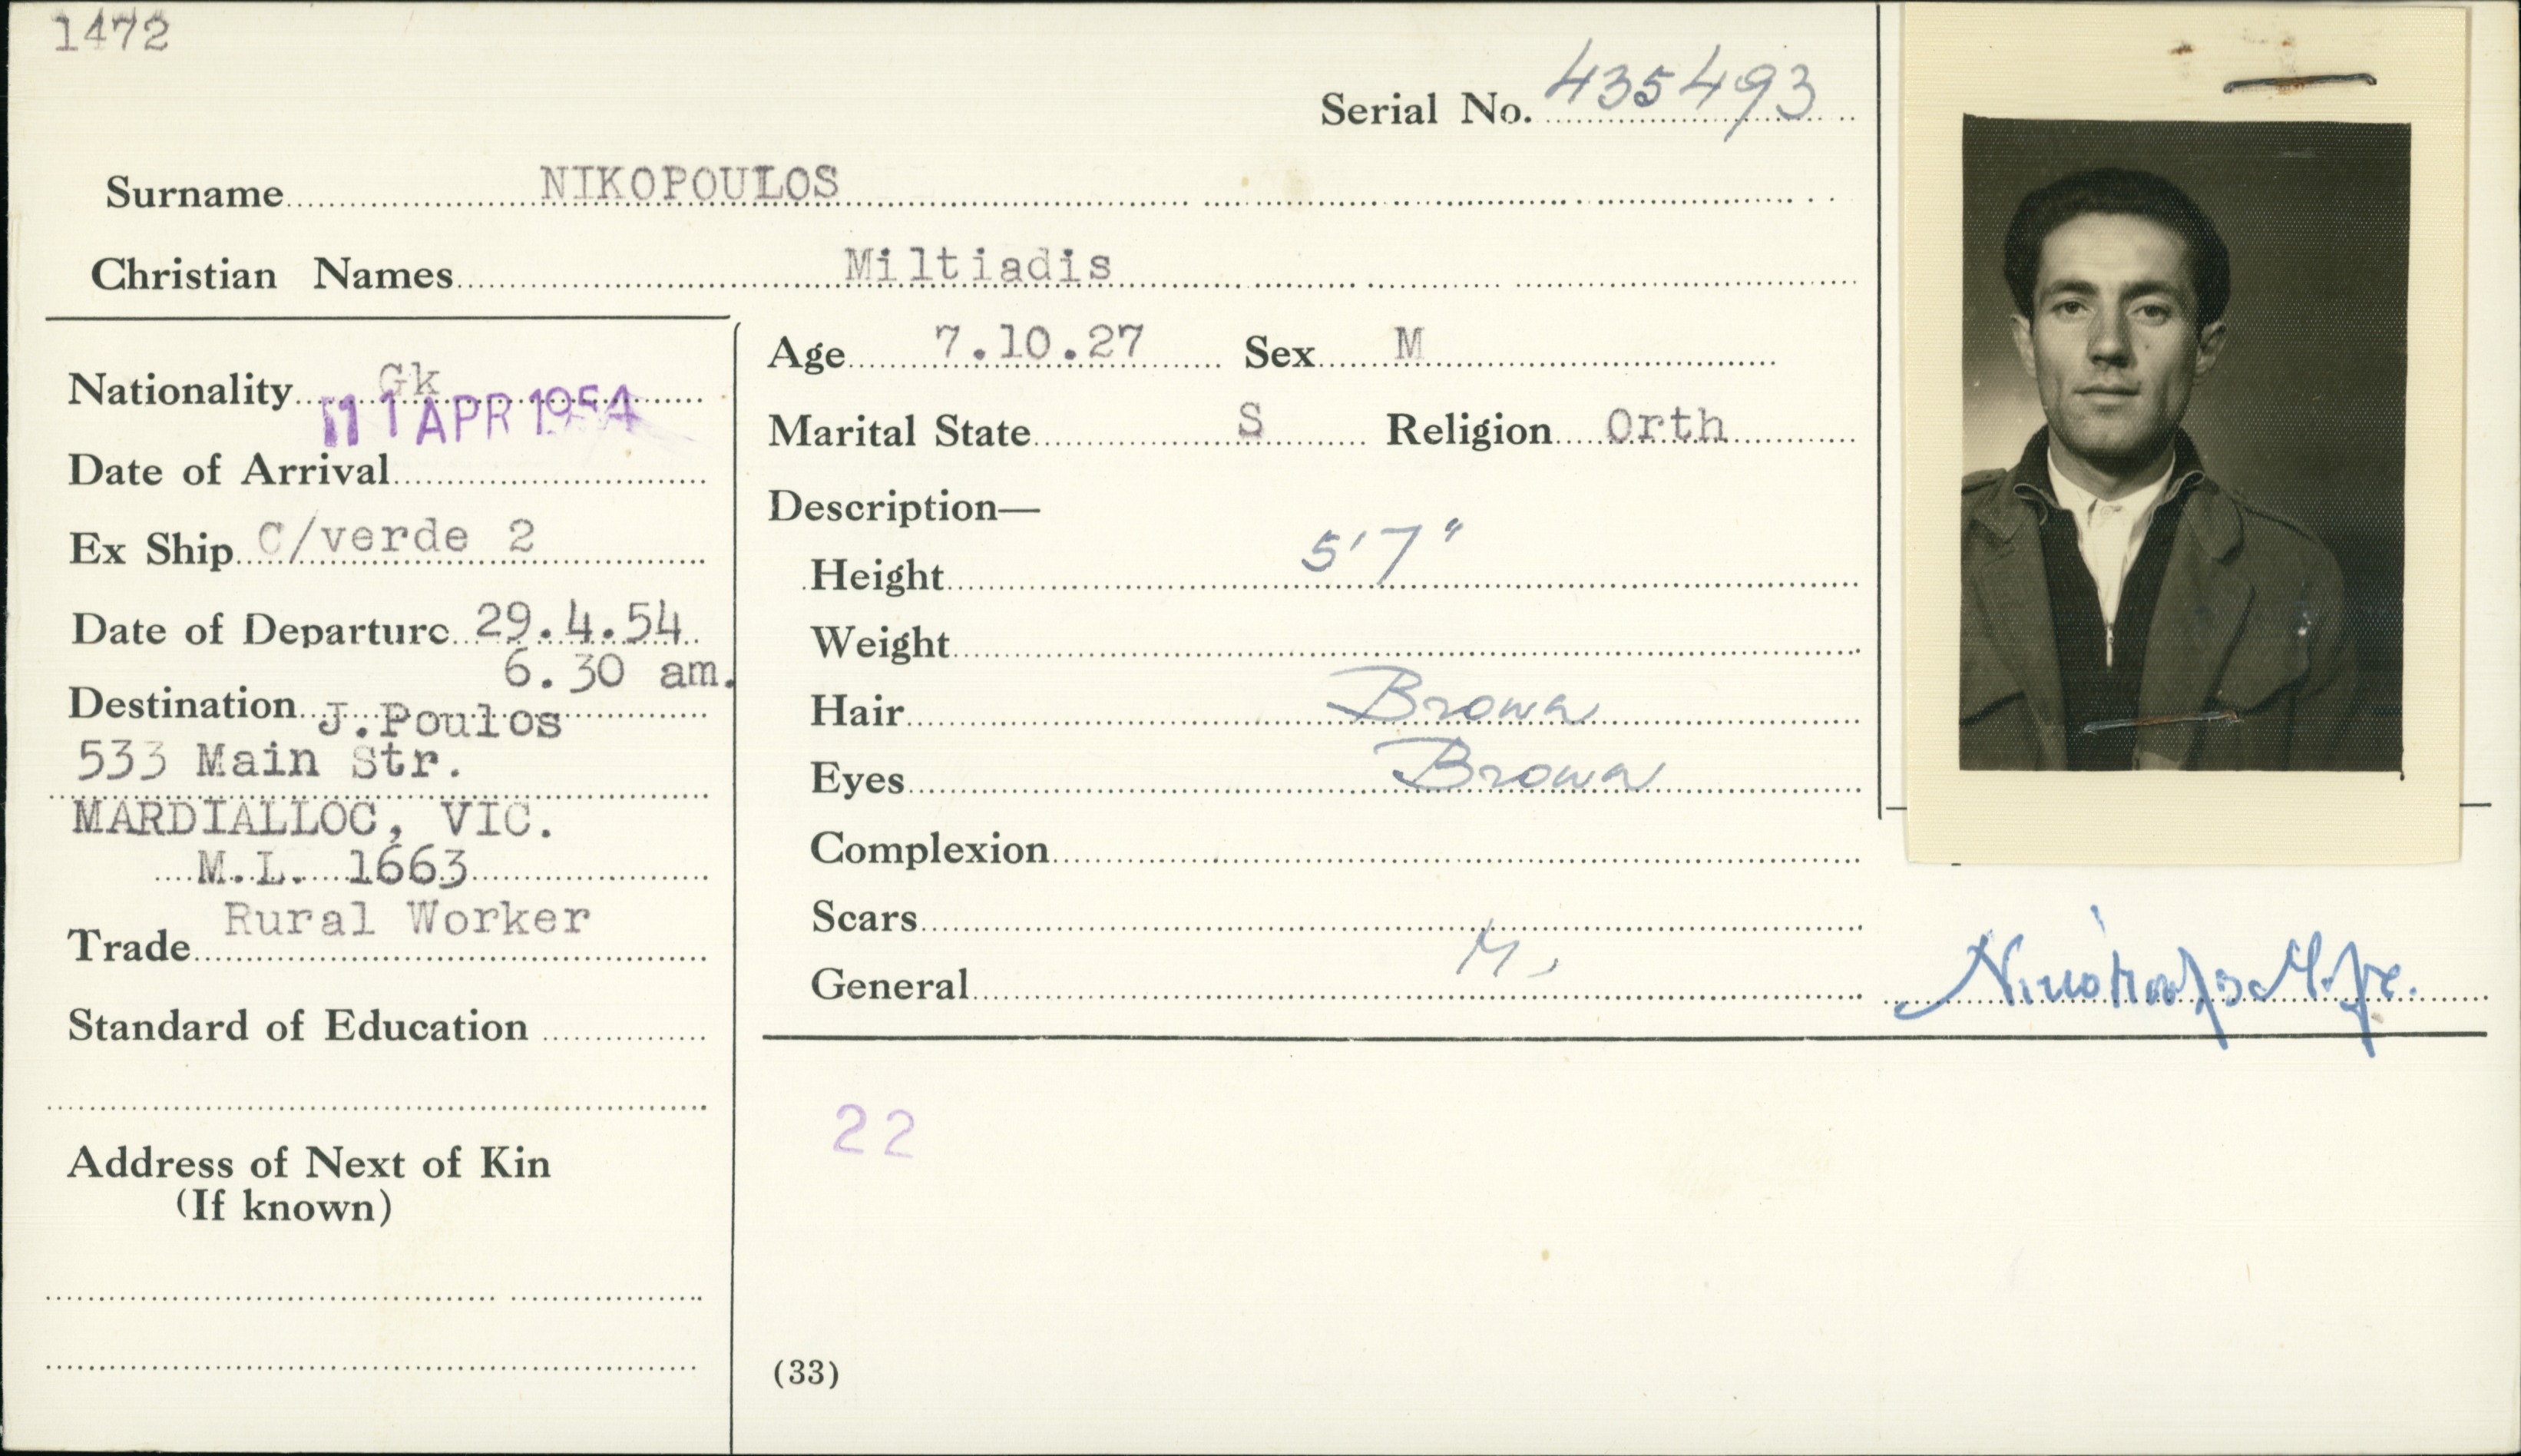 1472
Serial No. 435493
Surname NIKOPOULOS
Christian Names Miltiadis
Nationality Gk
11 APR 1954
Date of Arrival
Ex Ship C/verde 2
Date of Departure 29.4.54
6.30 am.
Destination J.Poulos
533 Main Str.
MARDIALLOC, VIC.
M.L. 1663
Rural Worker
Trade
Standard of Education
Address of Next of Kin
(If known)
Age 7.10.27 Sex M
Marital State S Religion Orth
Description—
Height 5'7"
Weight
Hair Brown
Eyes Brown
Complexion
Scars
General
22
(33)